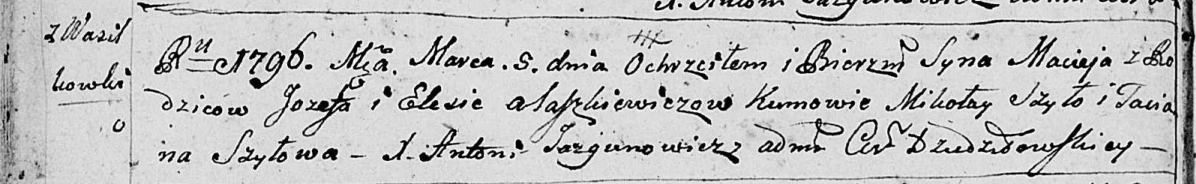 X. Antoni Jazgunowicz
z Wasil
kowki
o
Ru 1796. Mca. Marca. 5. dnia Ochrzciłem i Bierzm Syna Macieja z Ro
dziców Jozefa i Elesie Ałaszkiewiczow Kumowie Mikołay Szyło i Tacia
na Szyłowa – X. Antoni Jazgunowicz adm Cer Dziedziłowskiey –